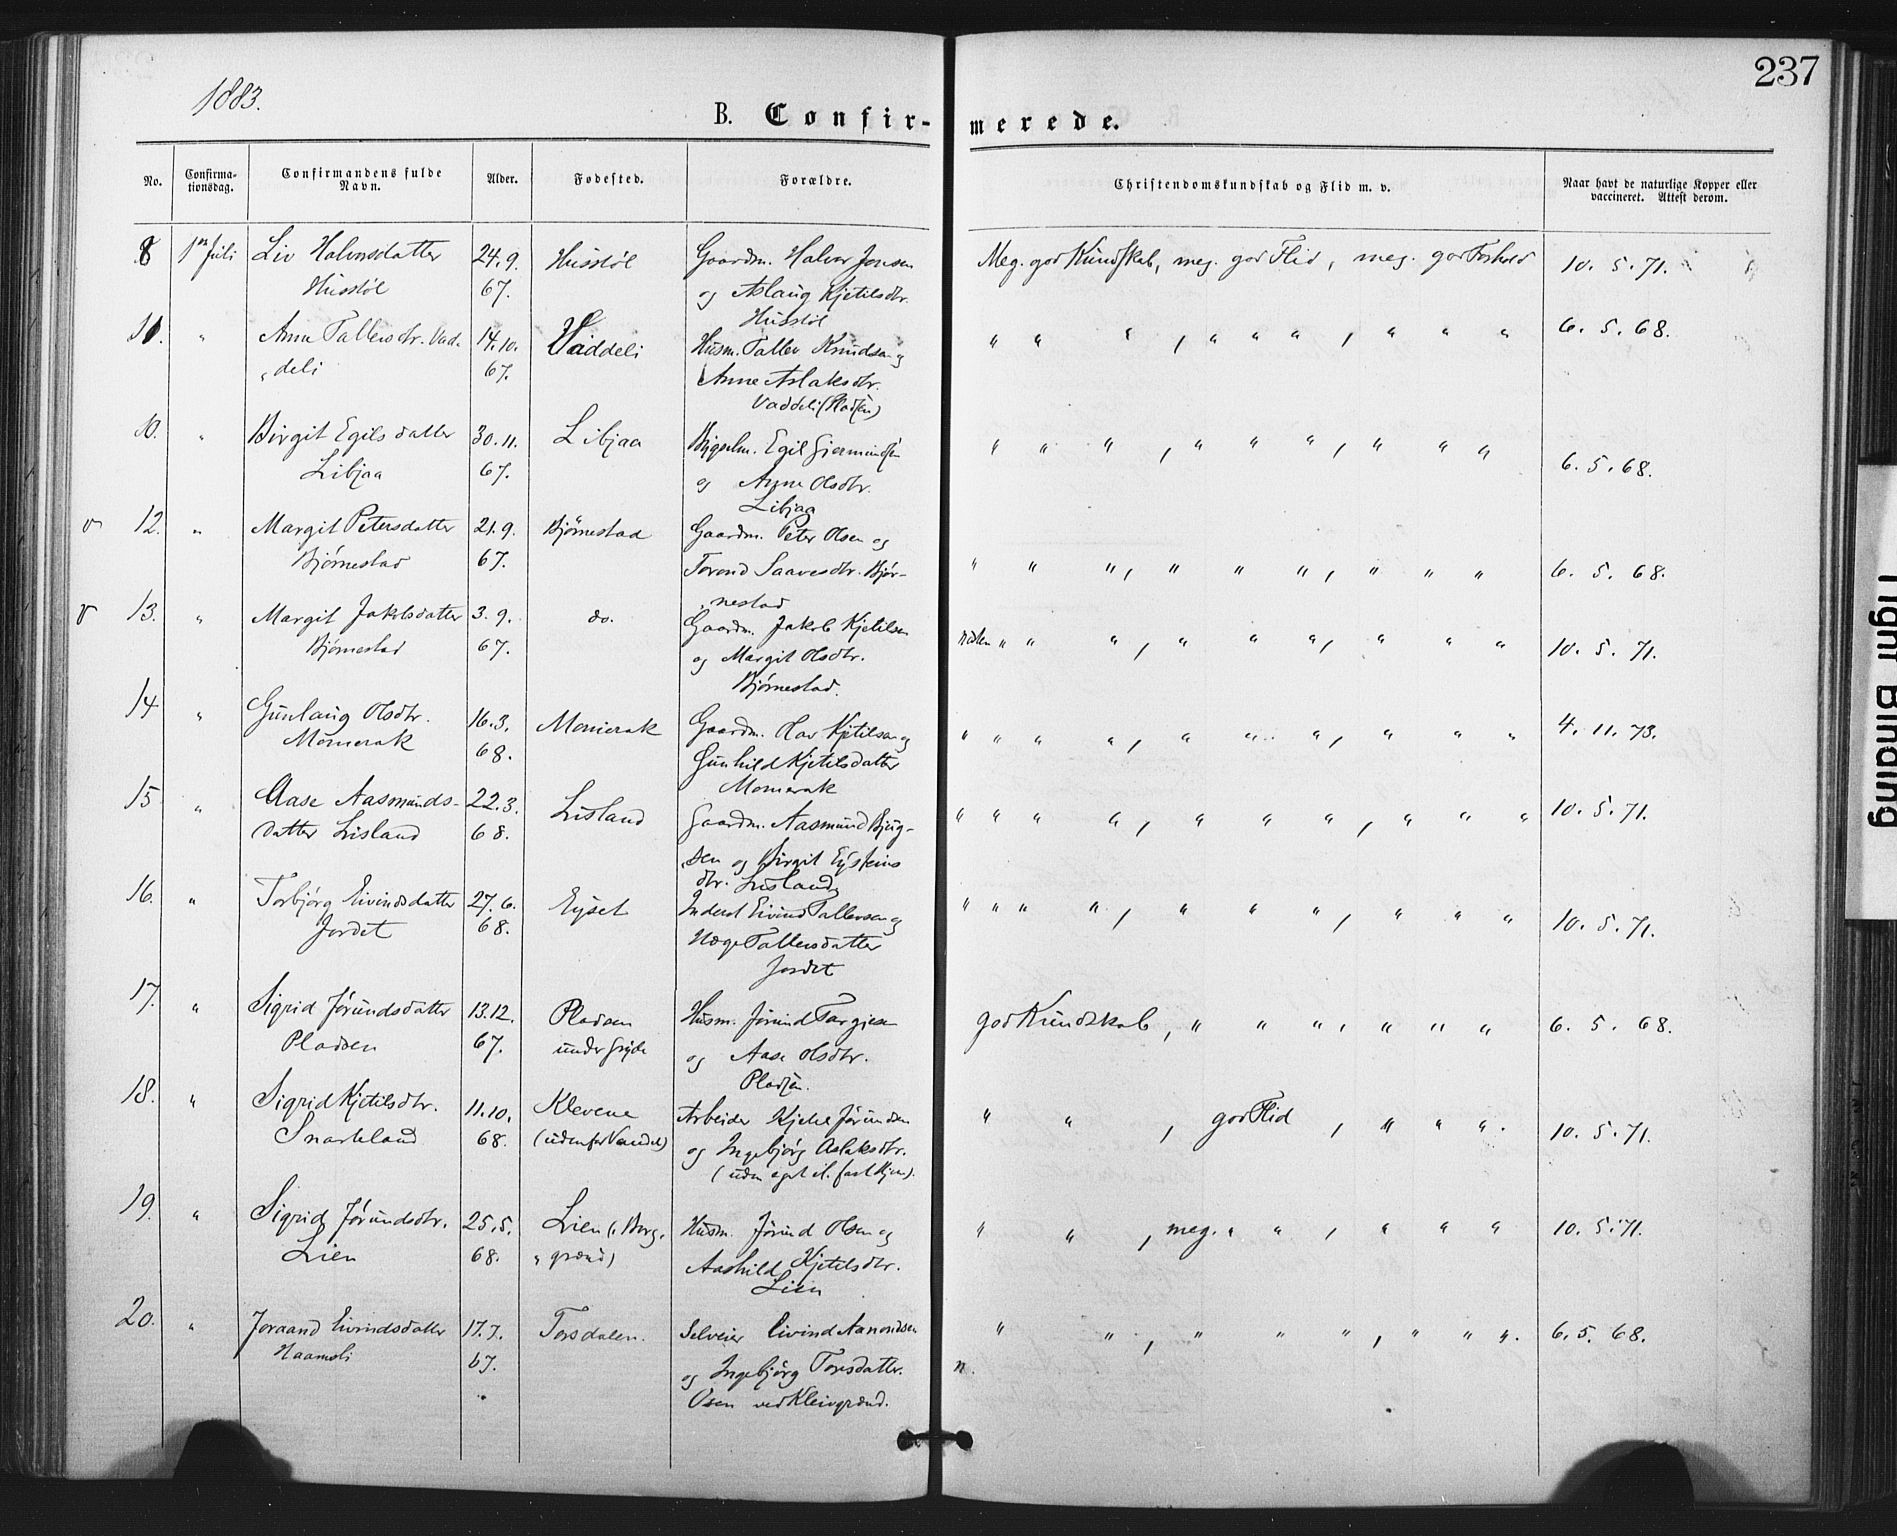 1883.
237
B. Confirmerede.
No.
Confirmationsdag.
Confirmandens fulde Navn.
Alder.
Fødested.
Forældre.
Christendomskundskab og Flid m. v.
Naar havt de naturlige Kopper eller vaccineret. Attest derom.
8 1ste Juli Liv Halvorsdatter 24. 9. Husstøl Gaardm. Halvor Jonsen Meg. god Kundskab, meg. god Flid, meg. god Forhold 10. 5. 71.
Husstøl 67. og Aslaug Kjetilsdtr.
Husstøl
11. " Anne Tallevsdtr. Vad- 14. 10. Vaddeli Husm. Tallev Knudsen og " " " , " " " , " " " 6. 5. 68.
deli 67. Anne Aslaksdtr.
Vaddeli (Pladsen)
10. " Birgit Egilsdatter 30. 11. Libjaa Bygselm. Egil Gjermundsen " " " , " " " , " " " 6. 5. 68.
Libjaa 67. og Anne Olsdtr.
Libjaa
v 12. " Margit Petersdatter 21. 9. Bjørnestad Gaardm. Peter Olsen og " " " , " " " , " " " 6. 5. 68.
Bjørnestad 67. Torond Saavesdtr. Bjør-
nestad
v 13. " Margit Jakobsdatter 3. 9. do. Gaardm. Jakob Kjetilsen næsten " " " , " " " , " " " 10. 5. 71.
Bjørnestad 67. og Margit Olsdtr.
Bjørnestad.
14 " Gunlaug Olsdtr. 16. 3. Momerak Gaardm. Olav Kjetilsen og " " " " , " " " , " " " 4. 11. 73.
Momerak 68. Gunhild Kjetilsdatter
Momerak
15 " Aase Aasmunds- 22. 3. Lisland Gaardm. Aasmund Bjug- " " " " , " " " , " " " 10. 5. 71.
datter Lisland 68. sen og Birgit Eysteins
dtr. Lisland
16. " Torbjørg Eivindsdatter 27. 6. Eyset Inderst Eivind Tallevsen og " " " " , " " " , " " " 10. 5. 71.
Jordet 68. Hæge Tallevsdatter
Jordet
17. " Sigrid Jørundsdatter 13. 12. Pladsen Husm. Jørund Targjesen god Kundskab, " " " , " " " 6. 5. 68.
Pladsen 67. under og Aase Olsdtr.
Pladsen.
18. " Sigrid Kjetilsdtr. 11. 10. Klevene Arbeider Kjetil Jørundsen " " , god Flid , " " " . 10. 5. 71.
Snarteland 68. og Ingebjørg Aslaksdtr.
(uden eget el. fast Hjem).
19. " Sigrid Jørundsdtr. 25. 5. Lien (i Borg- Husm. Jørund Olsen og " " , meg. " " , " " " 10. 5. 71.
Lien 68. grænd) Aashild Kjetilsdtr.
Lien
20. " Joraand Eivindsdatter 17. 7. Torsdalen. Selveier Eivind Aanondsen " " , " " " , " " " . 6. 5. 68.
Haamoli 67. og Ingebjørg Torsdatter. n.
Osen ved Kleivgrænd.
Tight Binding